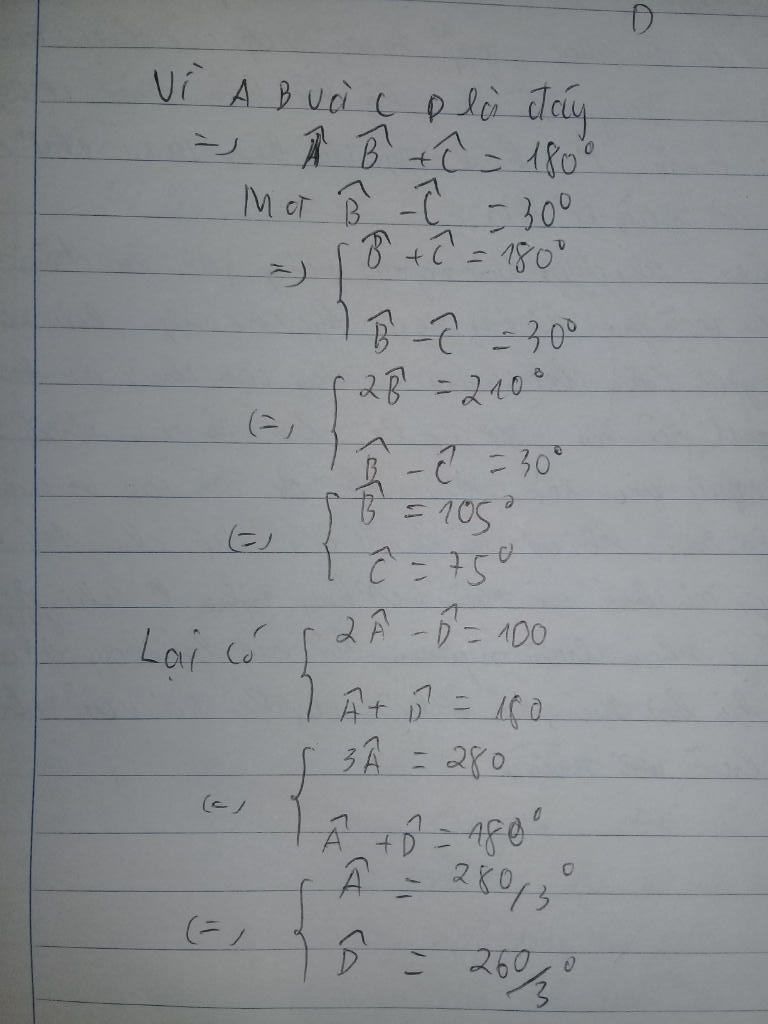 D
Vì A B và C D là đáy
=> B̂ + Ĉ = 180°
Mà B̂ - Ĉ = 30°
=> { B̂ + Ĉ = 180°
B̂ - Ĉ = 30°
<=> { 2B̂ = 210°
B̂ - Ĉ = 30°
<=> { B̂ = 105°
Ĉ = 75°
Lại có { 2Â - D̂ = 100
Â + D̂ = 180
<=> { 3Â = 280
Â + D̂ = 180°
<=> { Â = 280/3°
D̂ = 260/3°